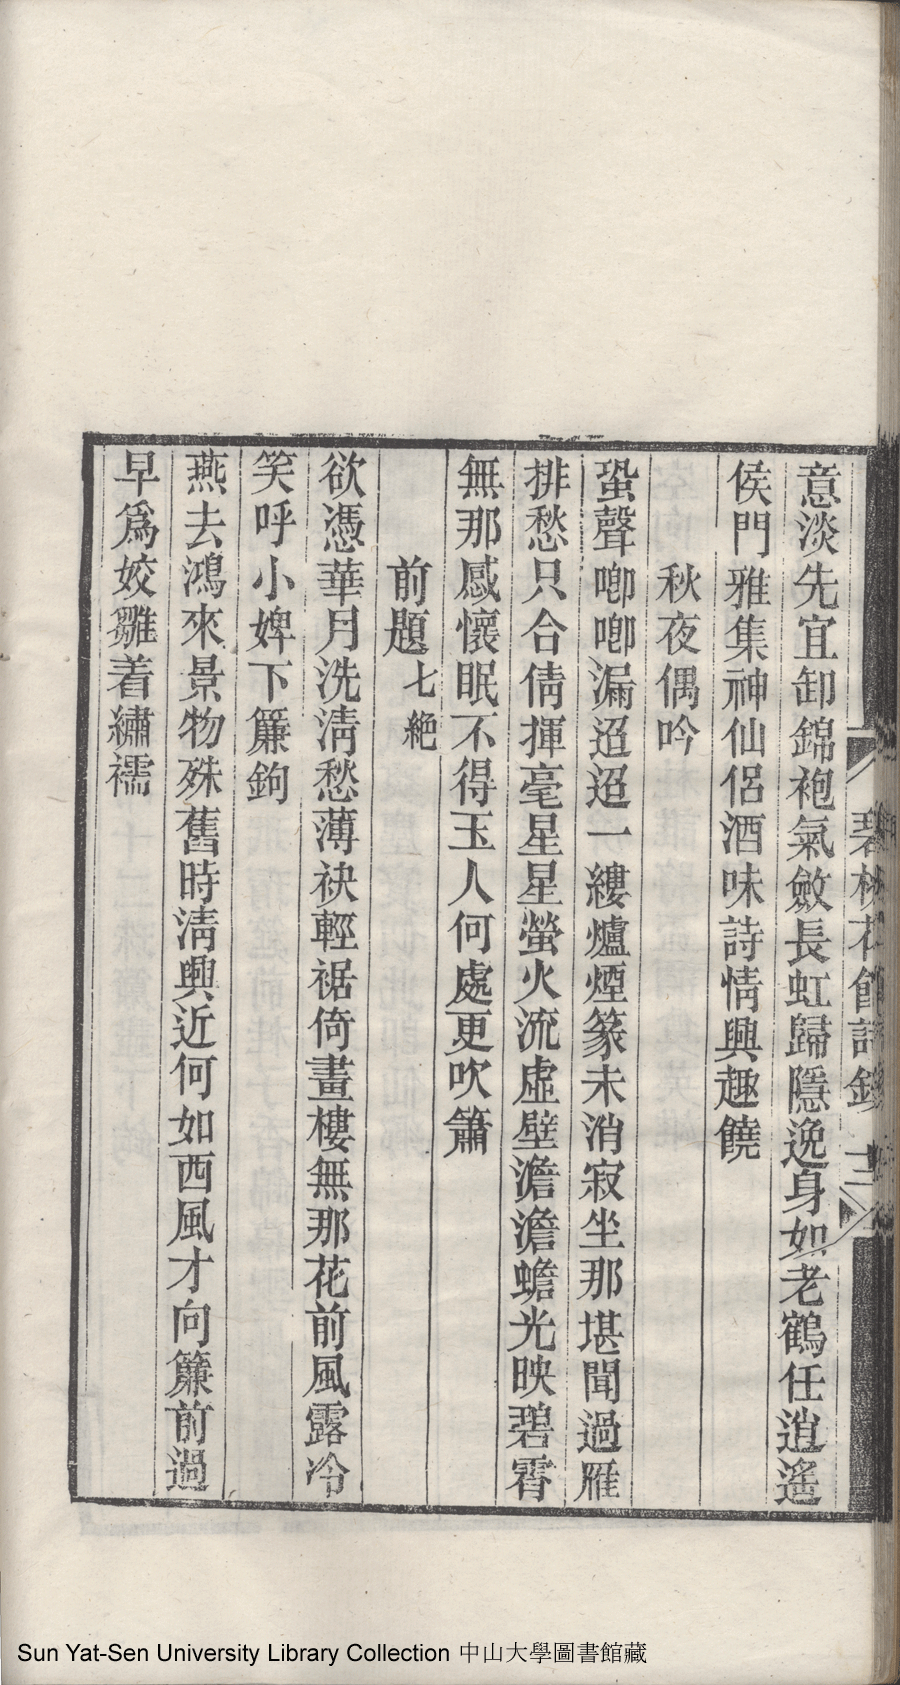 意淡先宜卸錦袍氣斂長虹歸隱逸身如老鶴任逍遙
侯門雅集神仙侶酒味詩情興趣饒
秋夜偶吟
蛩聲唧唧漏迢迢一縷爐煙篆未消寂坐那堪聞過雁
排愁只合倩揮毫星星螢火流虛壁澹澹蟾光映碧霄
無那感懷眠不得玉人何處更吹簫
前題七絕
欲憑華月洗清愁薄袂輕裾倚畫樓無那花前風露冷
笑呼小婢下簾鉤
燕去鴻來景物殊舊時清興近何如西風才向簾前過
早為姣雛着繡襦
碧桃花館詩鈔
Sun Yat-Sen University Library Collection 中山大學圖書館藏